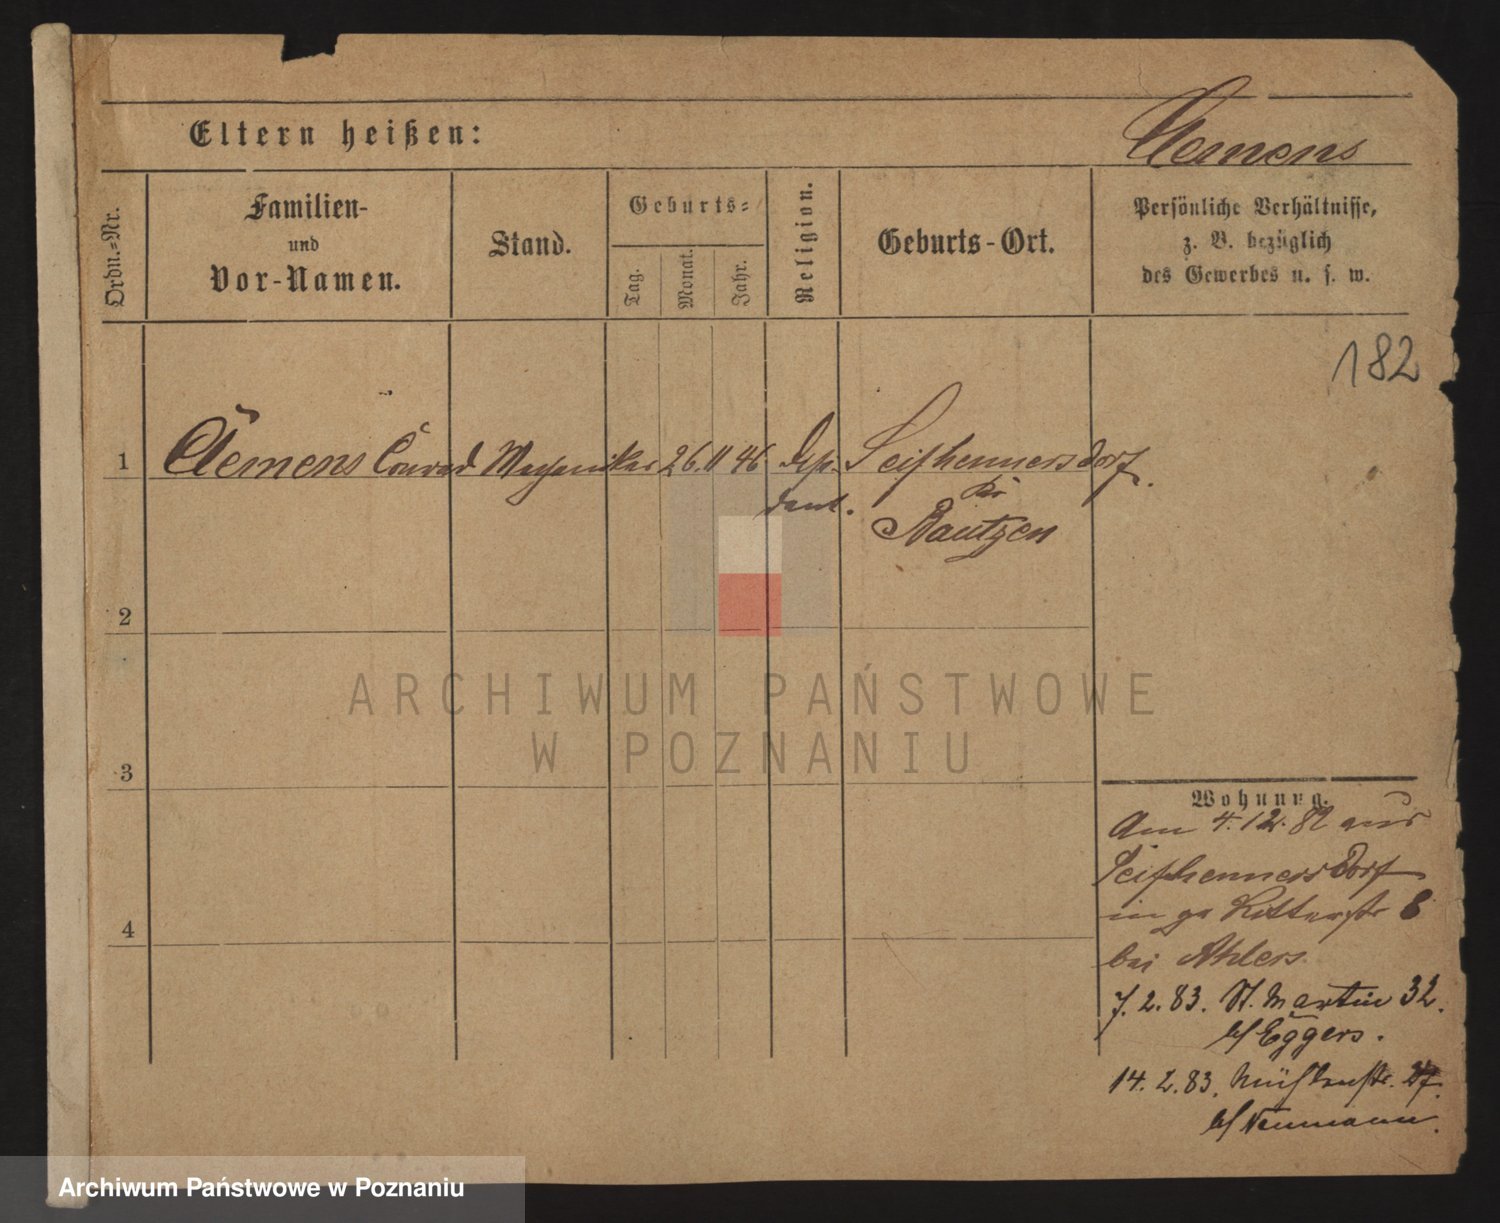 Eltern heißen:
Clemens
Ordn.-Nr.
Familien-
und
Vor-Namen.
Stand.
Geburts-
Tag.
Monat.
Jahr.
Religion.
Geburts-Ort.
Persönliche Verhältnisse,
z. B. bezüglich
des Gewerbes u. s. w.
182
1 Clemens Conrad Mechaniker 26. 11 46 Seifhennersdorf.
Bautzen
2
3
4
Wohnung.
Am 4.12.82 aus
Seifhennersdorf
in
bei Ahlers.
7.2.83. St. Martin 32.
b/ Eggers.
14.2.83. Mühlenstr.
b/ Neumann.
ARCHIWUM PAŃSTWOWE
W POZNANIU
Archiwum Państwowe w Poznaniu